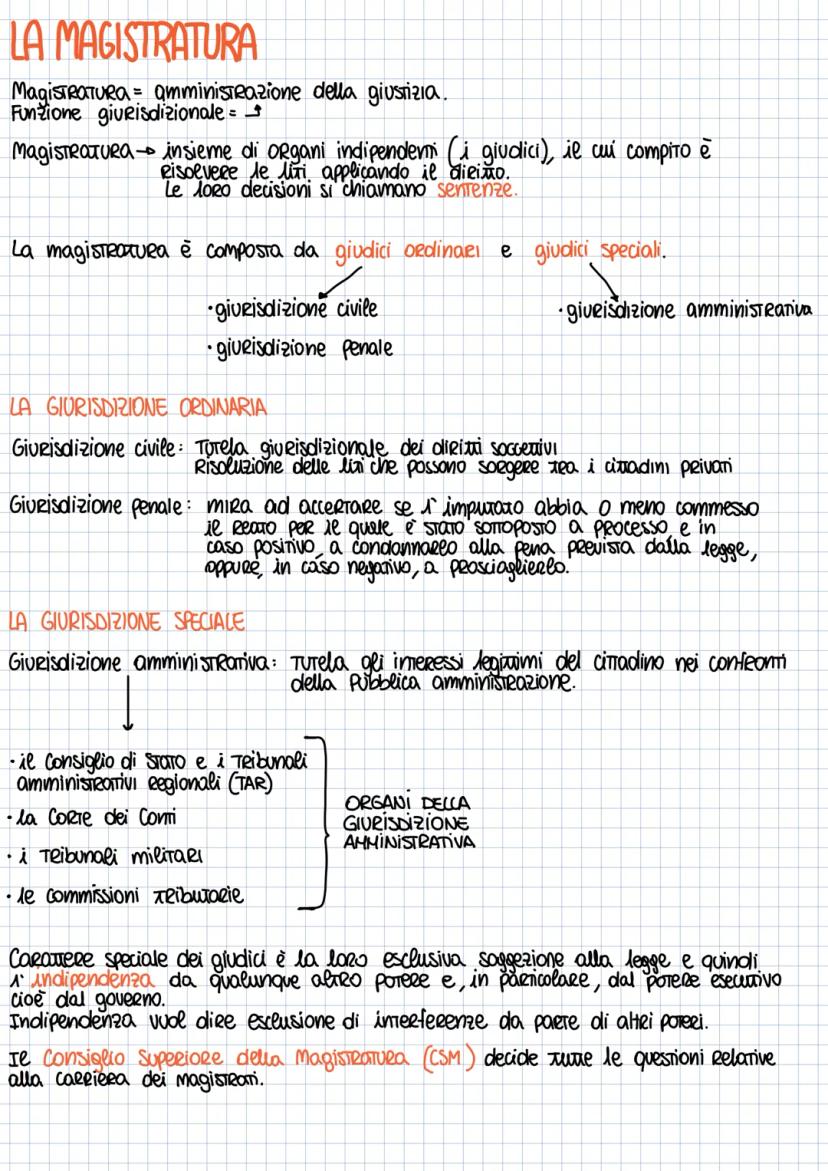 LA MAGISTRATURA
Magistratura = amministrazione della giustizia.
Funzione giurisdizionale = ⤴
Magistratura → insieme di organi indipendenti (i giudici), il cui compito è
risolvere le liti applicando il diritto.
Le loro decisioni si chiamano sentenze.
La magistratura è composta da giudici ordinari e giudici speciali.
•giurisdizione civile
•giurisdizione amministrativa
•giurisdizione penale
LA GIURISDIZIONE ORDINARIA
Giurisdizione civile: Tutela giurisdizionale dei diritti soggettivi
Risoluzione delle liti che possono sorgere tra i cittadini privati
Giurisdizione penale: mira ad accertare se l'imputato abbia o meno commesso
il reato per il quale è stato sottoposto a processo e in
caso positivo, a condannarlo alla pena prevista dalla legge,
oppure, in caso negativo, a prosciaglierlo.
LA GIURISDIZIONE SPECIALE
Giurisdizione amministrativa: Tutela gli interessi legittimi del cittadino nei confronti
della Pubblica amministrazione.
•il Consiglio di Stato e i Tribunali
amministrativi regionali (TAR)
•la Corte dei Conti
•i Tribunali militari
•le commissioni tributarie
ORGANI DELLA
GIURISDIZIONE
AMMINISTRATIVA
Carattere speciale dei giudici è la loro esclusiva soggezione alla legge e quindi
l'indipendenza da qualunque altro potere e, in particolare, dal potere esecutivo
cioè dal governo.
Indipendenza vuol dire esclusione di interferenze da parte di altri poteri.
Il Consiglio Superiore della Magistratura (CSM) decide tutte le questioni relative
alla carriera dei magistrati.